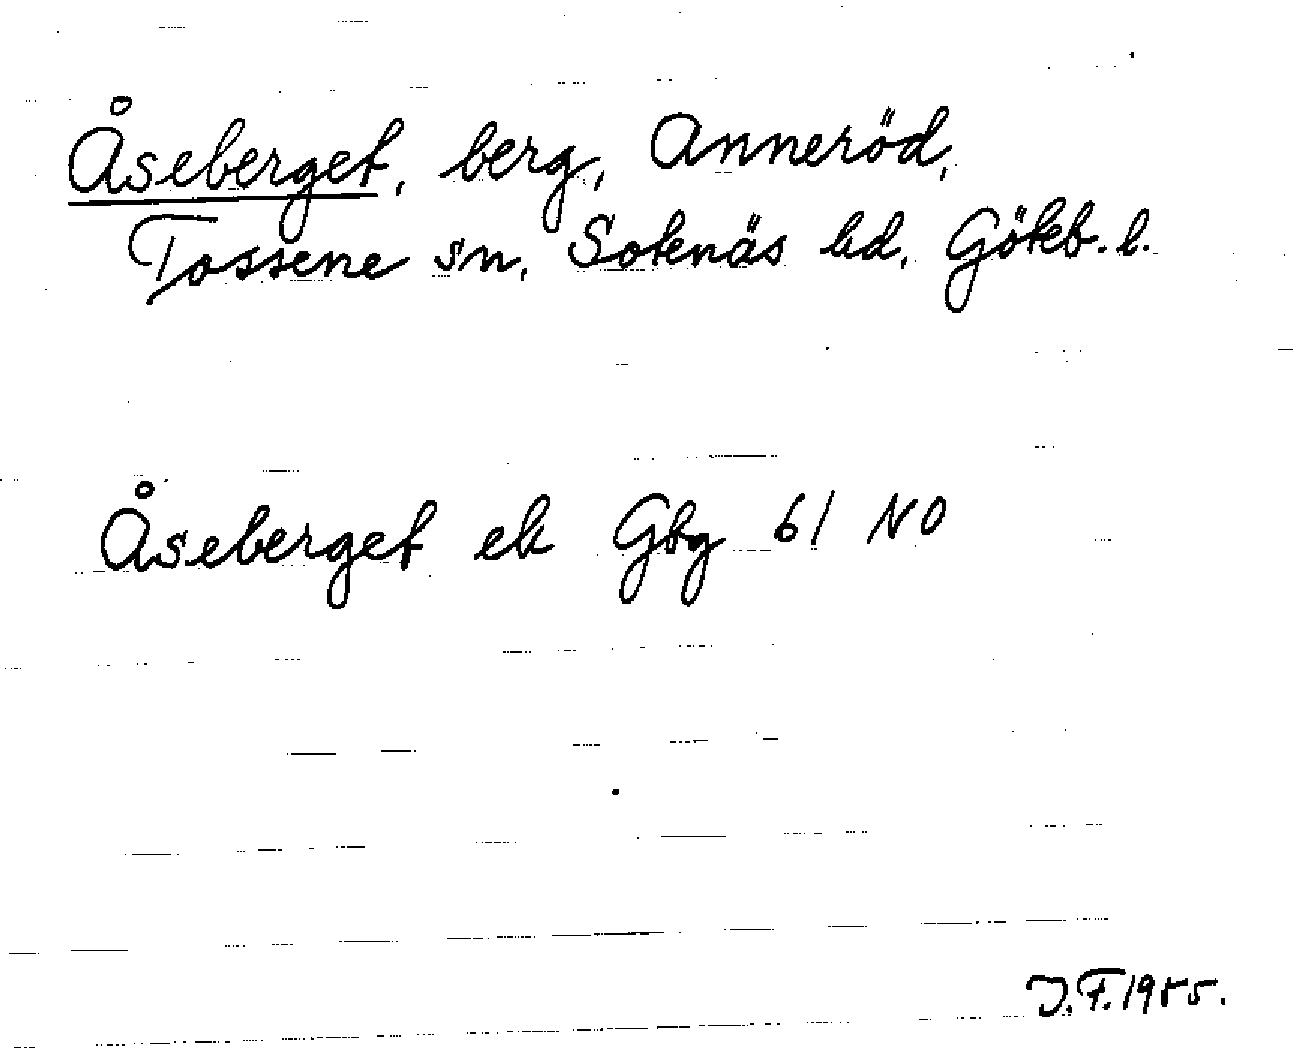 Åseberget, berg, Anneröd,
Tossene sn, Sotenäs hd, Göteb. l.
Åseberget ek Gbg 61 NO
J.F. 1955.